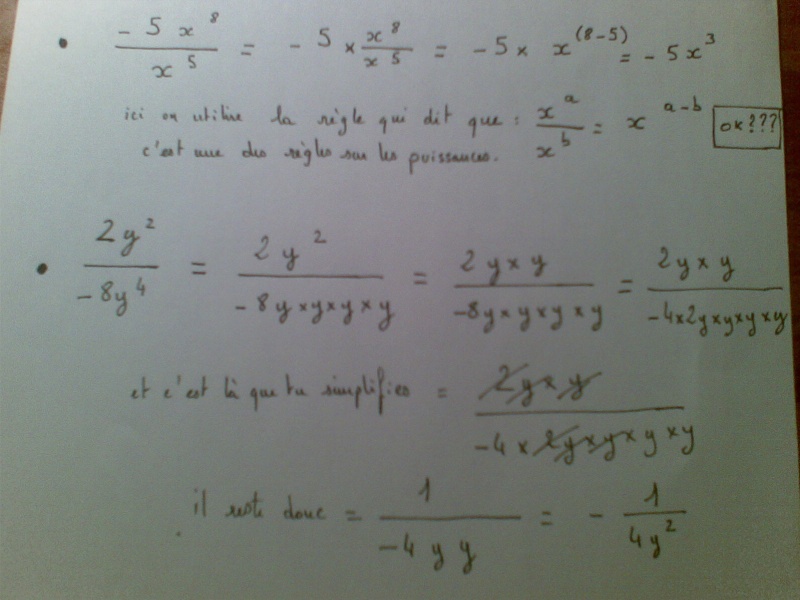 • -5x⁸/x⁵ = -5 × x⁸/x⁵ = -5 × x⁽⁸⁻⁵⁾ = -5x³
ici on utilise la règle qui dit que : xᵃ/xᵇ = x ᵃ⁻ᵇ OK???
c'est une des règles sur les puissances.
• 2y²/-8y⁴ = 2y²/-8y×y×y×y = 2y×y/-8y×y×y×y = 2y×y/-4×2y×y×y×y
et c'est là que tu simplifies = 2y×y/-4×2y×y×y×y
il reste donc = 1/-4 y y = - 1/4y²